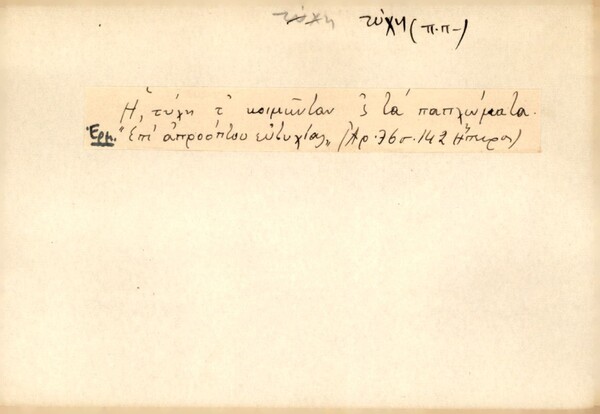 τύχη τύχη (π.π-)
Ἡ τύχη τ' κοιμῶνταν 'ς τὰ παπλώματα.
Ἑρμ. "Ἐπὶ ἀπροόπτου εὐτυχίας" (Ἀρ. 76 σ. 142 Ἤπειρος)